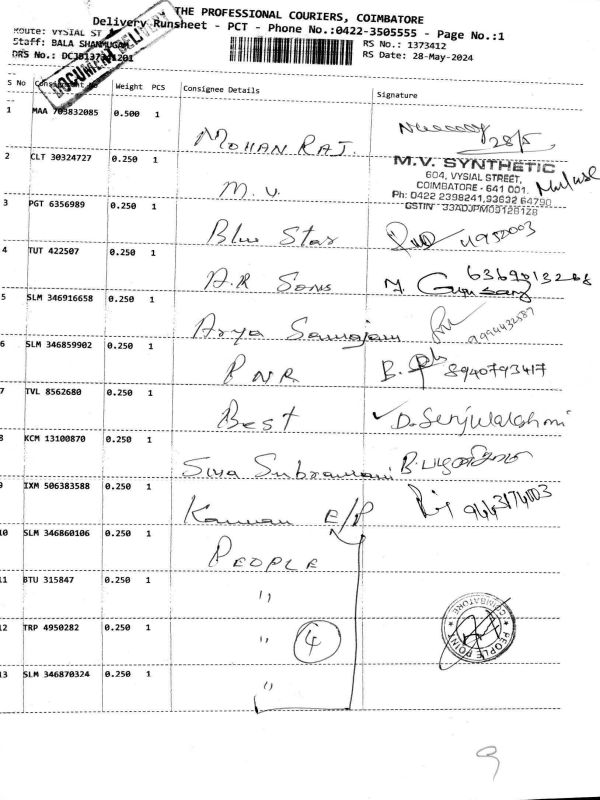 THE PROFESSIONAL COURIERS, COIMBATORE
Delivery Runsheet - PCT - Phone No.:0422-3505555 - Page No.:1
Route: VYSIAL ST
RS No.: 1373412
Staff: BALA SHANMUGAM
RS Date: 28-May-2024
DRS No.:
DOCUMENT DELIVERY
S No Consignment No Weight PCS Consignee Details Signature
1 MAA 703832085 0.500 1 MOHAN RAJ. 28/5
2 CLT 30324727 0.250 1 M.V.
M.V. SYNTHETIC
604, VYSIAL STREET,
COIMBATORE - 641 001.
Ph: 0422 2398241,93632 64790
3 PGT 6356989 0.250 1 Blue Star
4 TUT 422507 0.250 1 A.R Sons
5 SLM 346916658 0.250 1 Arya Samajam 9994432587
6 SLM 346859902 0.250 1 PNR B. 8940793417
7 TVL 8562680 0.250 1 Best
8 KCM 13100870 0.250 1 Siva Subramani
9 IXM 506383588 0.250 1 Kannan E/P 9443174003
10 SLM 346860106 0.250 1 PEOPLE
11 BTU 315847 0.250 1 "
12 TRP 4950282 0.250 1 " 4
PEOPLE POINT
COIMBATORE
13 SLM 346870324 0.250 1 "
9